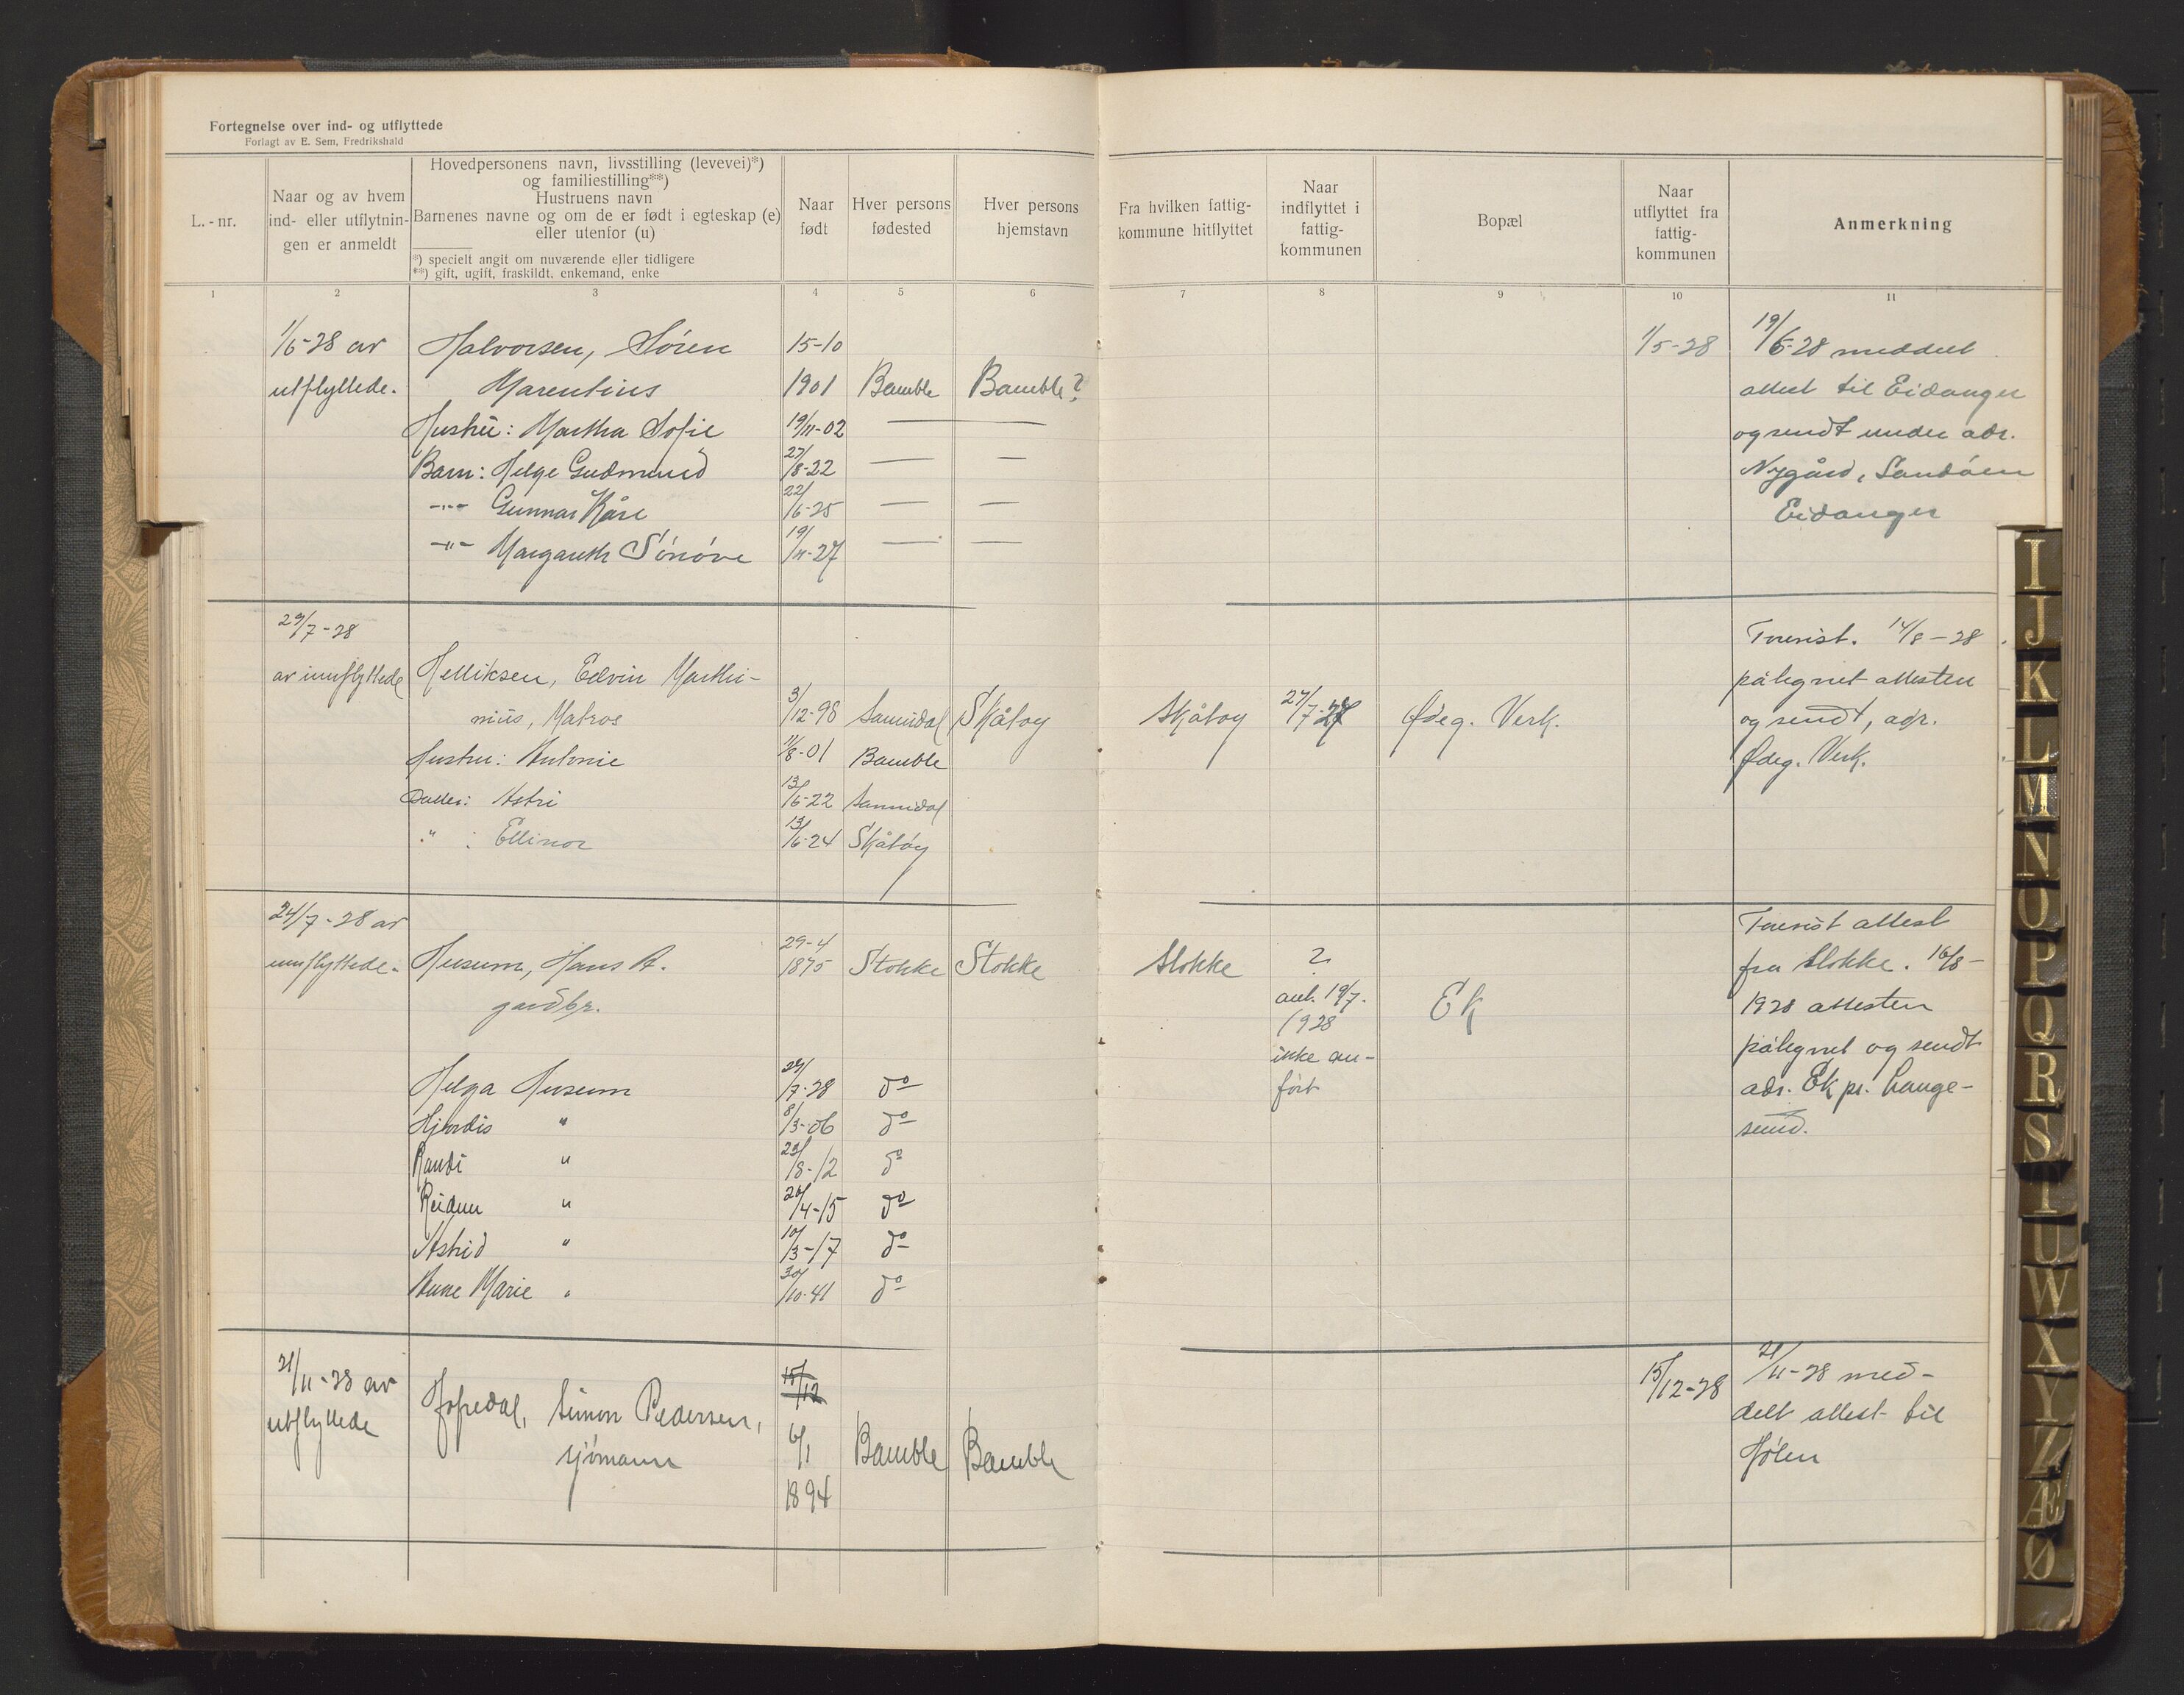 Fortegnelse over ind- og utflyttede
Forlagt av E. Sem, Fredrikshald
L.-nr.
Naar og av hvem
ind- eller utflytnin-
gen er anmeldt
Hovedpersonens navn, livsstilling (levevei)*)
og familiestilling**)
Hustruens navn
Barnenes navne og om de er født i egteskap (e)
eller utenfor (u)
*) specielt angit om nuværende eller tidligere
**) gift, ugift, fraskildt, enkemand, enke
Naar
født
Hver persons
fødested
Hver persons
hjemstavn
Fra hvilken fattig-
kommune hitflyttet
Naar
indflyttet i
fattig-
kommunen
Bopæl
Naar
utflyttet fra
fattig-
kommunen
Anmerkning
1 2 3 4 5 6 7 8 9 10 11
1/6-28 av Halvorsen, Søren 15-10 1/5-28 19/6-28 meddelt
utflyttede. Marentius 1901 Bamble Bamble? attest til Eidanger
Hustru: Martha Sofie 19/11-02 — og sendt under adr.
Barn: Helge Gudmund 27/8-22 — — Nygård, Sandöen
-"- Gunnar Kåre 22/6-25 — — Eidanger
-"- Margareth Sönöve 19/11-27 — —
29/7-28 Tourist. 14/8-28
av innflyttede Helliksen, Edvin Marthi- påtegnet attesten
nius, Matros 3/12-98 Sannidal Skåtøy Skåtøy 27/7-28 Ødeg. Verk. og sendt, adr.
Hustru: Antonie 11/8-01 Bamble Ødeg. Verk.
Datter: Astri 13/6-22 Sannidal
" : Ellinor 13/6-24 Skåtöy
24/7-28 av Tourist attest
innflyttede. Husum, Hans A. 29-4 1875 Stokke Stokke Stokke ? fra Stokke. 16/8-
gardbr. ank. 19/7. 1928 Ek 1928 attesten
ikke an- påtegnet og sendt
Helga Husum 29/7-28 do ført adr. Ek pr. Lange-
Hjørdis " 8/3-06 do sund.
Randi " 23/8-12 do
Reidun " 20/4-15 do
Astrid " 10/3-17 do
Anne Marie " 30/10-41 do
21/11-28 av 15/12 15/12-28 21/11-28 med-
utflyttede Simon Pedersen, 6/1 Bamble Bamble delt attest til
sjömann 1894 Hölen
I
J
K
L
M
N
O
P
Q
R
S
T
U
W
X
Y
Z
Æ
Ø